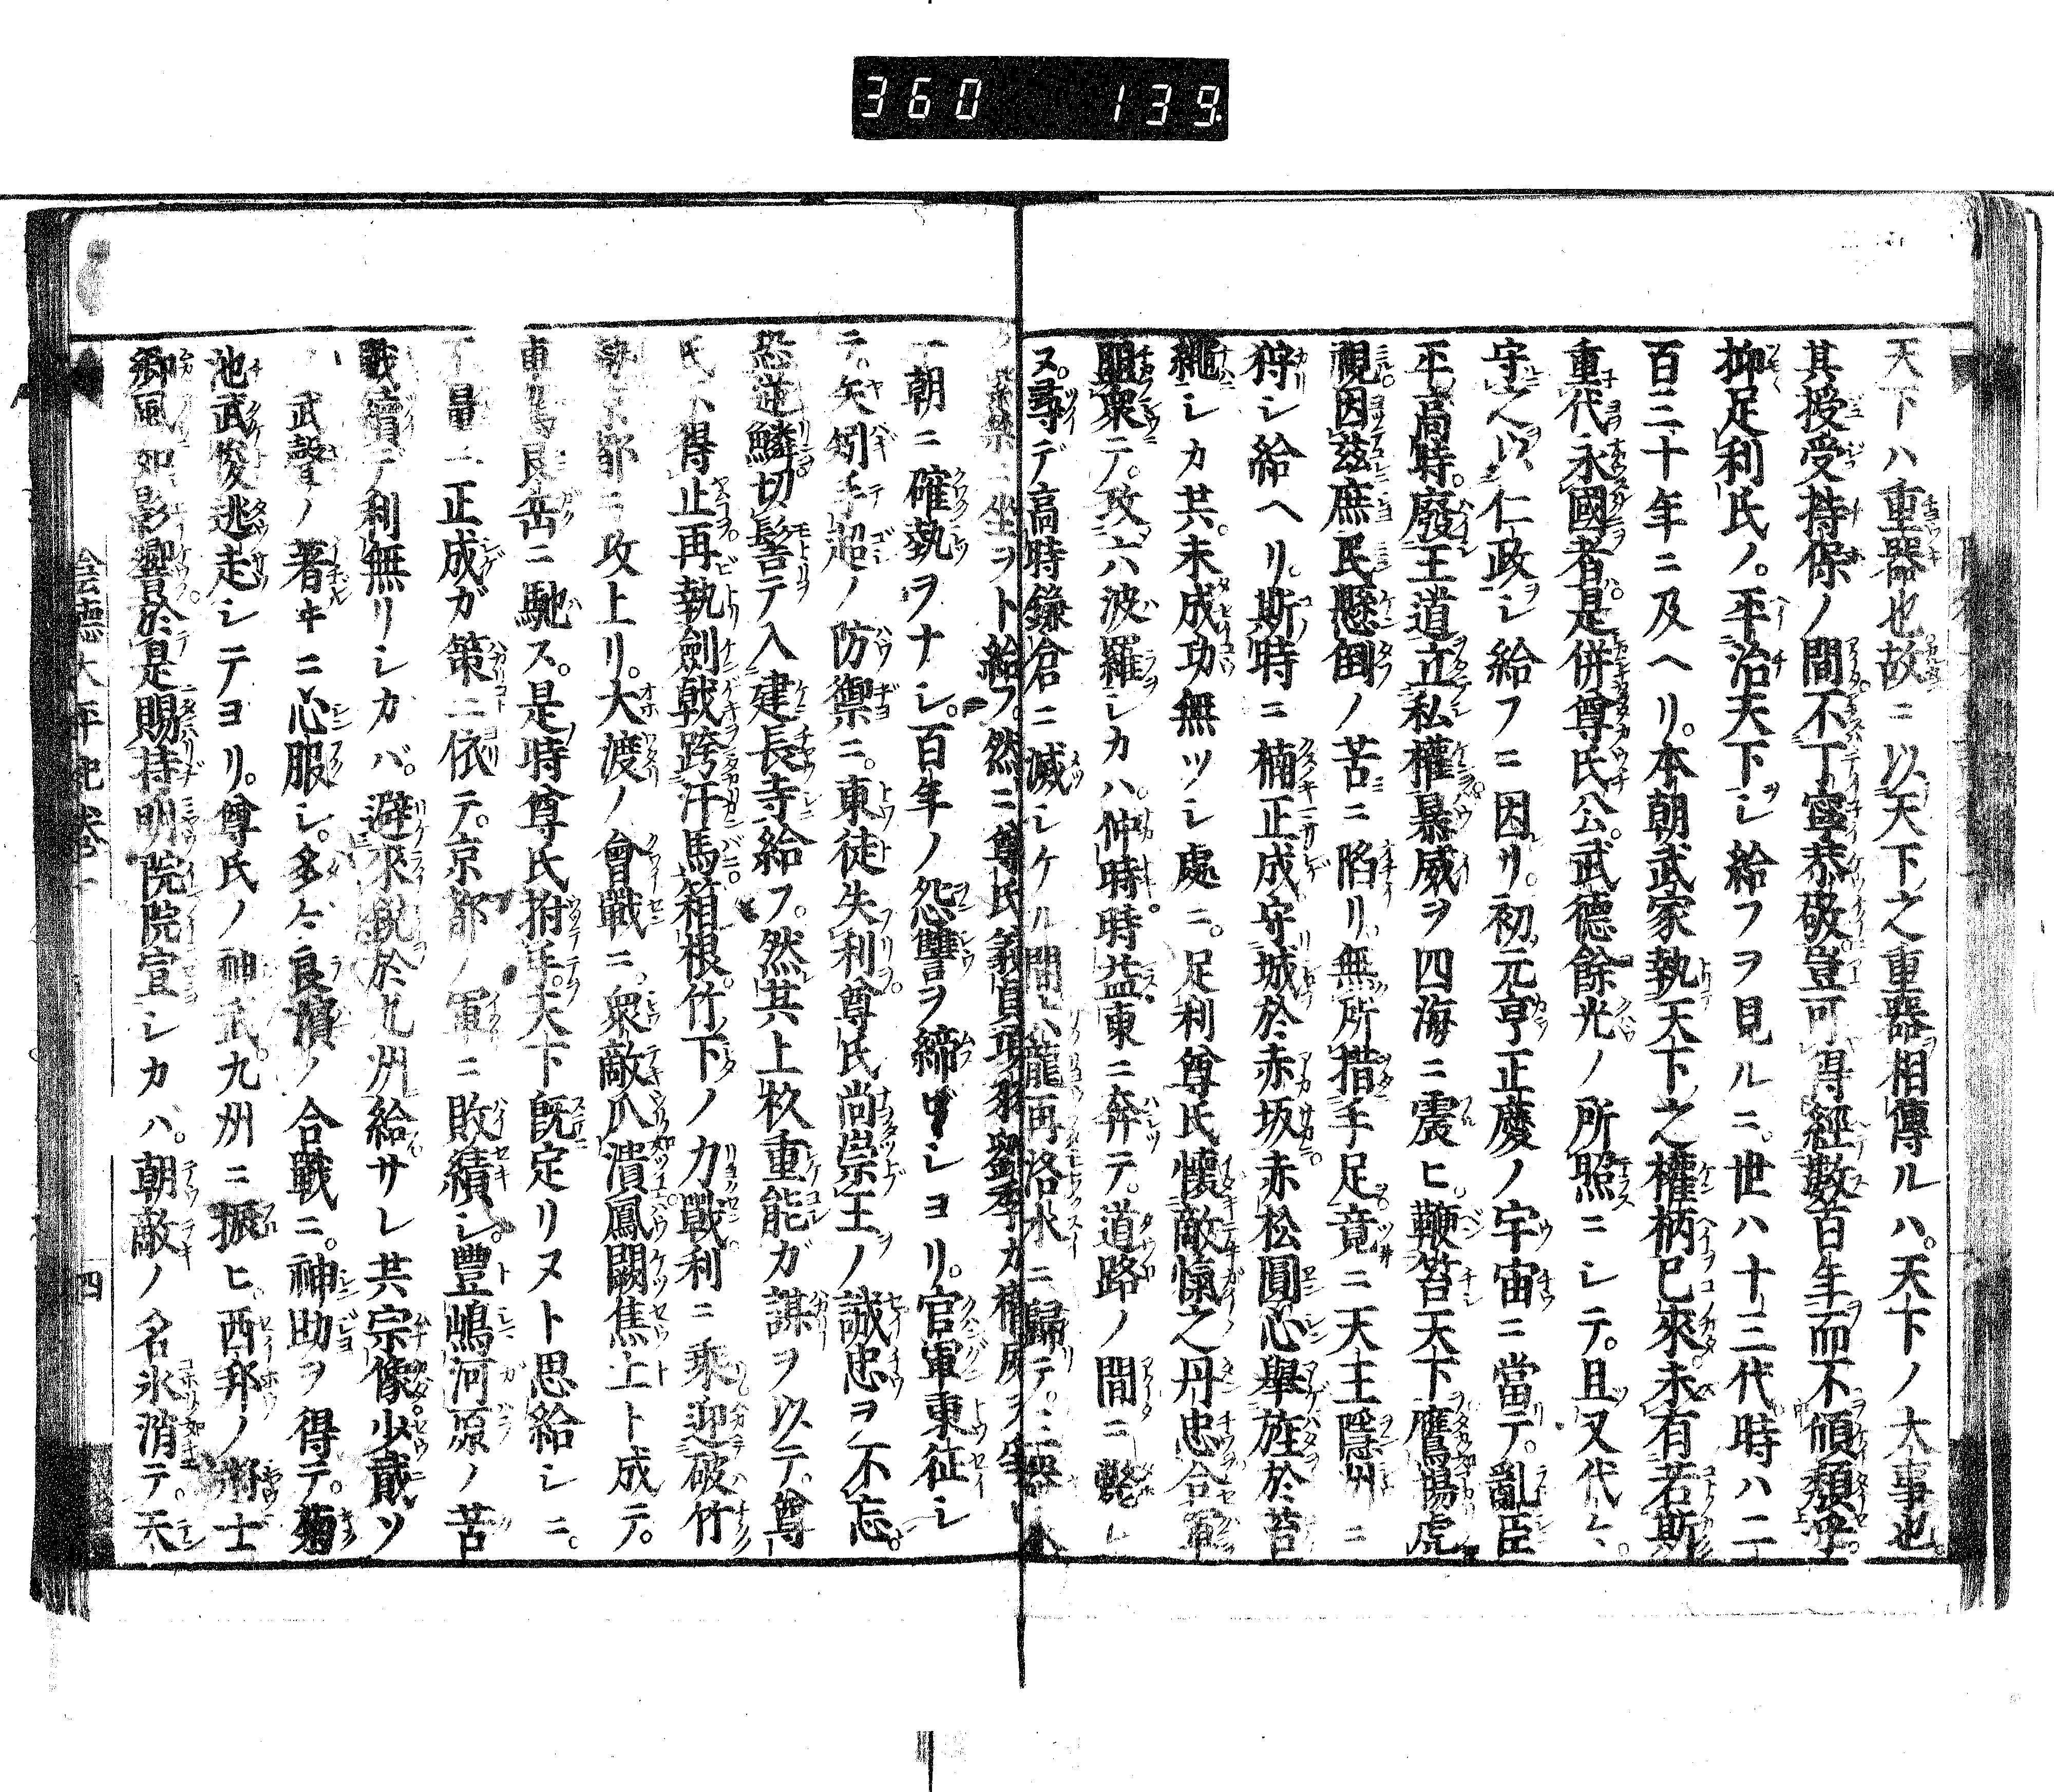 360 139
天下ハ重器也故ニ以天下之重器相傳ルハ。天下ノ大事也。
其授受持保ノ間不丁寧恭敬。豈可得經數百年而不傾頽乎。
抑足利氏ノ。平治天下シ給フヲ見ルニ。世ハ十三代時ハ二
百三十年ニ及ヘリ。本朝武家執天下之權柄已來未有若斯
重代永國者。是併尊氏公。武德餘光ノ所照ニシテ。且又代々
守之以仁政シ給フニ因リ。初元亨正慶ノ宇宙ニ當テ。亂臣
平高時。廢王道立私權暴威ヲ四海ニ震ヒ。鞭笞天下鷹揚虎
視因茲庶民懸倒ノ苦ニ陷リ。無所措手足竟ニ天主隱州ニ
狩シ給ヘリ。斯時ニ楠正成守城於赤坂。赤松圓心舉旌於苔
繩シカ共。未成功無ツシ處ニ。足利尊氏懷敵愾之丹忠合軍
聚テ。攻六波羅シカハ。仲時時益東ニ奔テ。道路ノ間ニ斃レ
ヌ。尋デ高時鎌倉ニ滅シケル間。六龍再洛水ニ歸テ。
ニ坐ヲト給フ。然ニ尊氏義貞項羽劉季カ權威ヲ
一朝ニ確執ヲナシ。百年ノ怨讐ヲ締ヒシヨリ。官軍東征シ
テ。矢矧手超ノ防禦ニ。東徒失利。尊氏尚崇王ノ誠忠ヲ不忘。
恐逆鱗切髻テ入建長寺給フ。然其上杉重能ガ謀ヲ以テ。尊
氏不得止再執劍戟跨汗馬。箱根竹下ノ力戰利ニ乘迎破竹
勢京都ニ攻上リ。大渡ノ會戰ニ。衆敵爪潰鳳闕焦土ト成テ。
車駕艮岳ニ馳ス。是時尊氏拊手。天下既定リヌト思給シニ。
不量ニ正成ガ策ニ依テ。京都ノ軍ニ敗績シ。豐嶋河原ノ苦
戰續テ利無リシカバ。避來銳於九州給サレ共宗像少貳ソ
ノ武譽ノ著キニ心服シ。多々良濱ノ合戰ニ。神助ヲ得テ。菊
池武俊逃走シテヨリ。尊氏ノ神武九州ニ振ヒ。西邦ノ將士
郷風如影響。於是賜持明院院宣シカハ。朝敵ノ名氷消テ。天
陰德太平記卷一
四